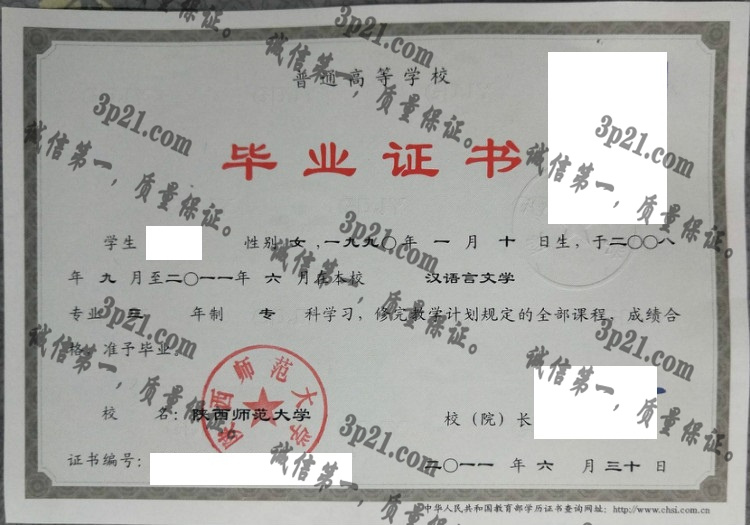 普通高等学校
毕业证书
学生 性别 女 ,一九九〇年 一 月 十 日生，于二〇〇八
年 九 月至二〇一一年 六 月在本校 汉语言文学
专业 三 年制 专 科学习，修完教学计划规定的全部课程，成绩合
格，准予毕业。
陕西师范大学
校 名：陕西师范大学 校（院）长
证书编号： 二〇一一 年 六 月 三十 日
中华人民共和国教育部学历证书查询网址：http://www.chsi.com.cn
3p21.com
诚信第一，质量保证。
3p21.com
诚信第一，质量保证。
3p21.com
诚信第一，质量保证。
3p21.com
诚信第一，质量保证。
3p21.com
诚信第一，质量保证。
3p21.com
诚信第一，质量保证。
3p21.com
诚信第一，质量保证。